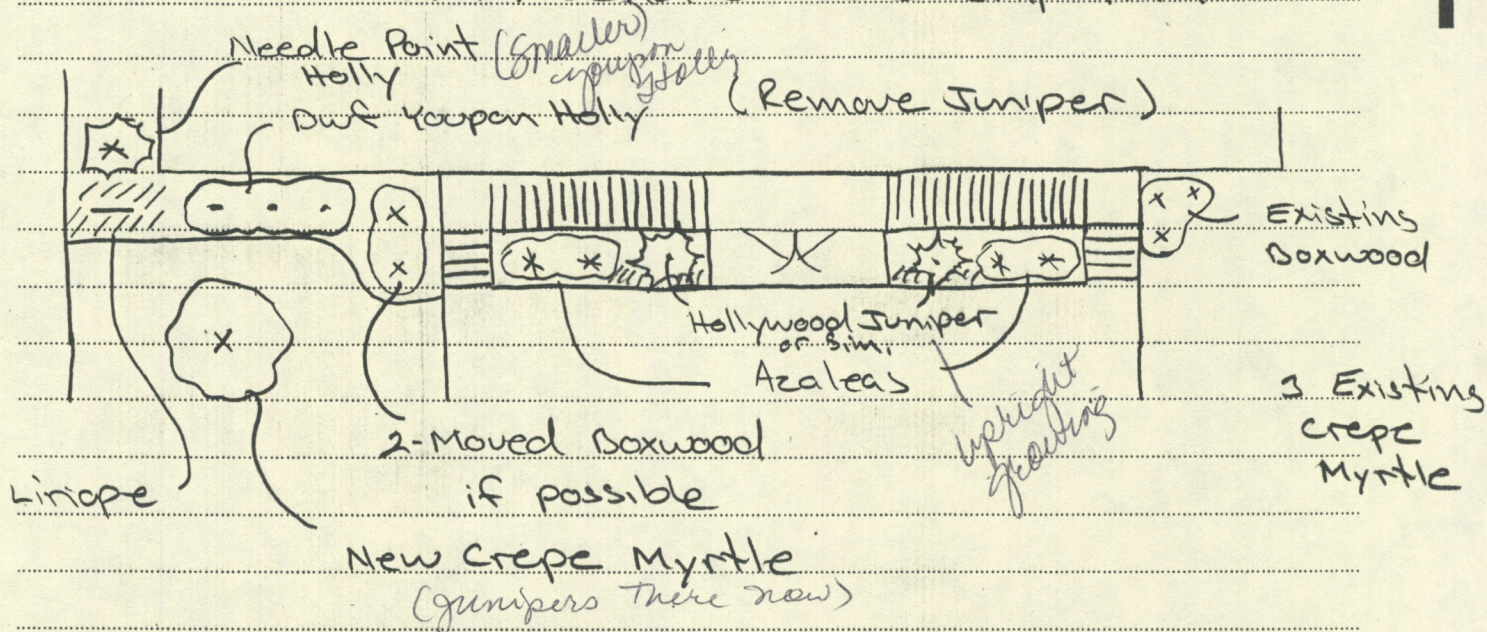 Needle Point (Smaller)
Holly youpon
Holly
(Remove Juniper)
Dwf Youpon Holly
Existing
Boxwood
Hollywood Juniper
or Sim.
Azaleas
upright
growing
3 Existing
Crepe
Myrtle
2-Moved Boxwood
if possible
Liriope
New Crepe Myrtle
(junipers There now)